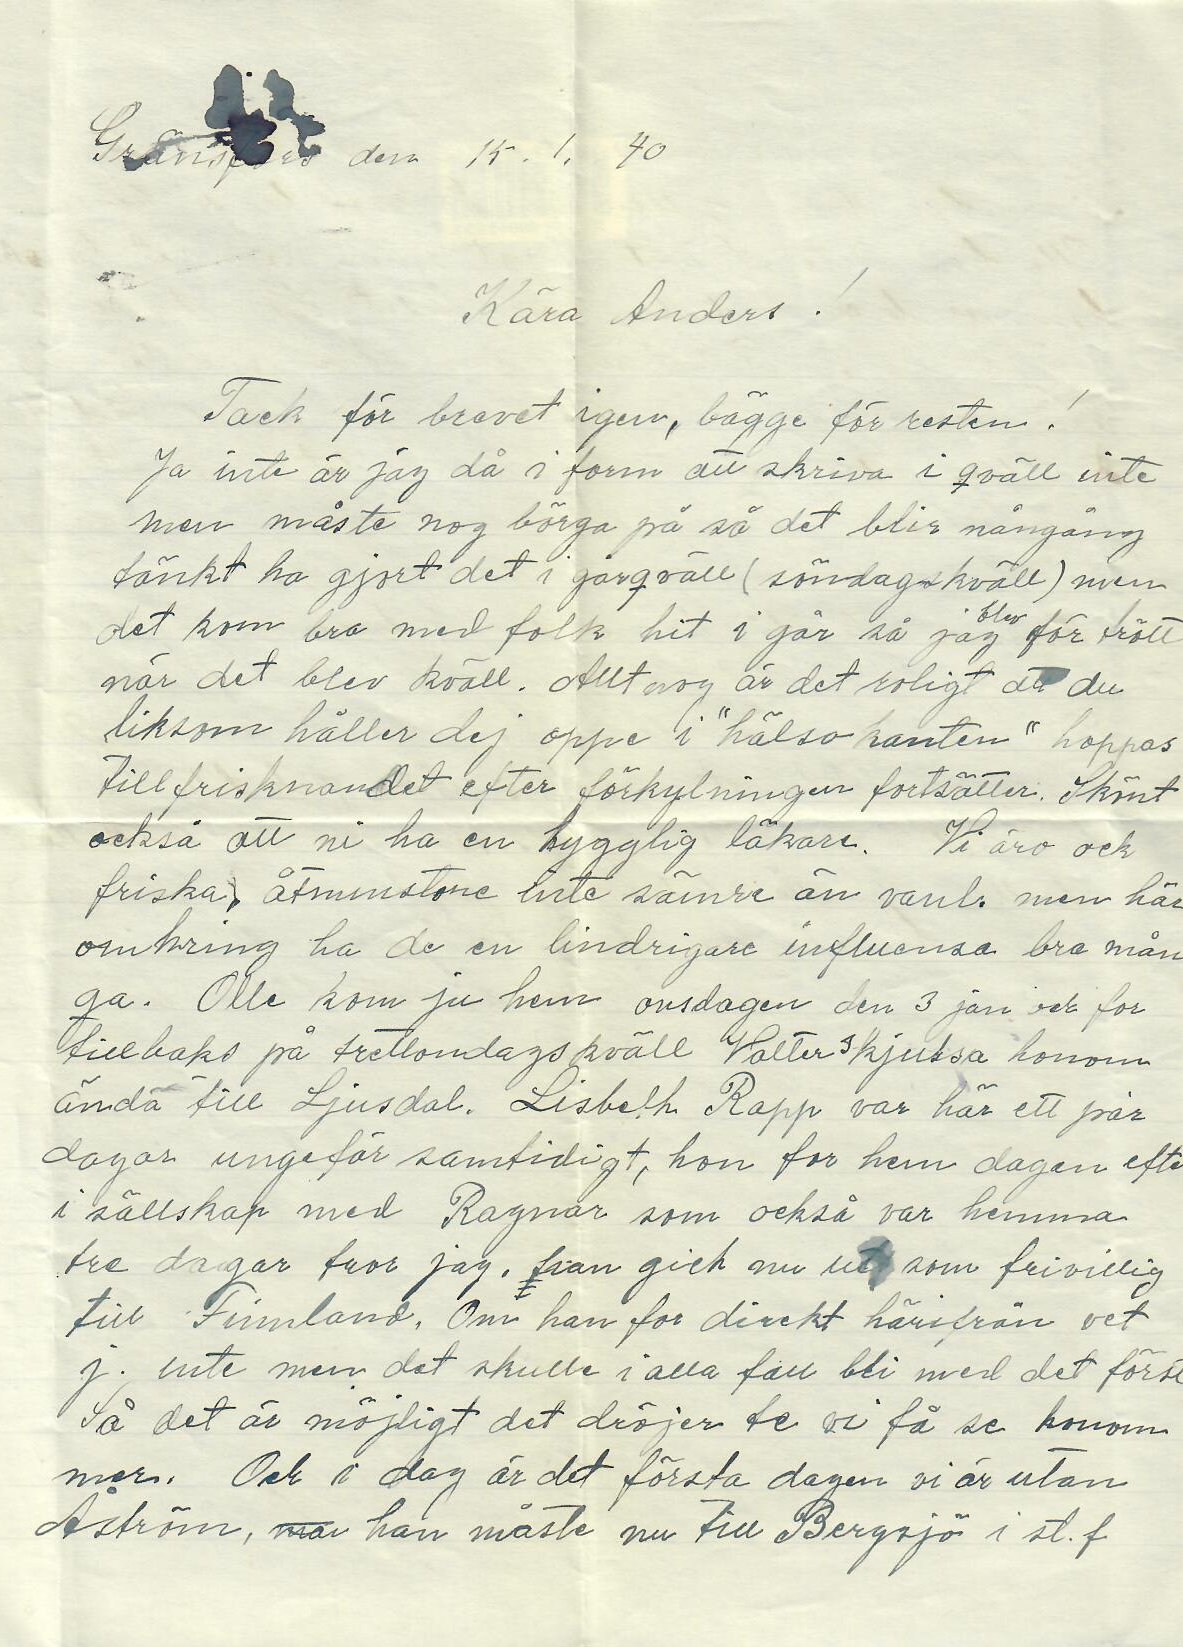 Gränsfors den 15. 1. 40
Kära Anders!
Tack för brevet igen, bägge för resten!
Ja inte är jag då i form att skriva i qväll inte
men måste nog börga på så det blir nångång
tänkt ha gjort det i gårqväll (söndagskväll) men
det kom bra med folk hit i går så jag blev för trött
när det blev kväll. Allt nog är det roligt att du
liksom håller dej oppe i "hälsokanten" hoppas
tillfrisknandet efter förkylningen fortsätter. Skönt
också att ni ha en hygglig läkare. Vi äro ock
friska, åtminstone inte sämre än vanl. men här
omkring ha de en lindrigare influensa bra mån
ga. Olle kom ju hem onsdagen den 3 jan och for
tillbaks på trettondagskväll Valter skjutsa honom
ändå till Ljusdal. Lisbeth Rapp var här ett par
dagar ungefär samtidigt, hon for hem dagen efte
i sällskap med Ragnar som också var hemma
tre dagar tror jag, han gick nu ut som frivillig
till Finnland. Om han for direkt härifrån vet
j. inte men det skulle i alla fall bli med det först
Så det är möjligt det dröjer te vi få se honom
mer. Och i dag är det första dagen vi är utan
Åström, han måste nu till Bergsjö i st. f